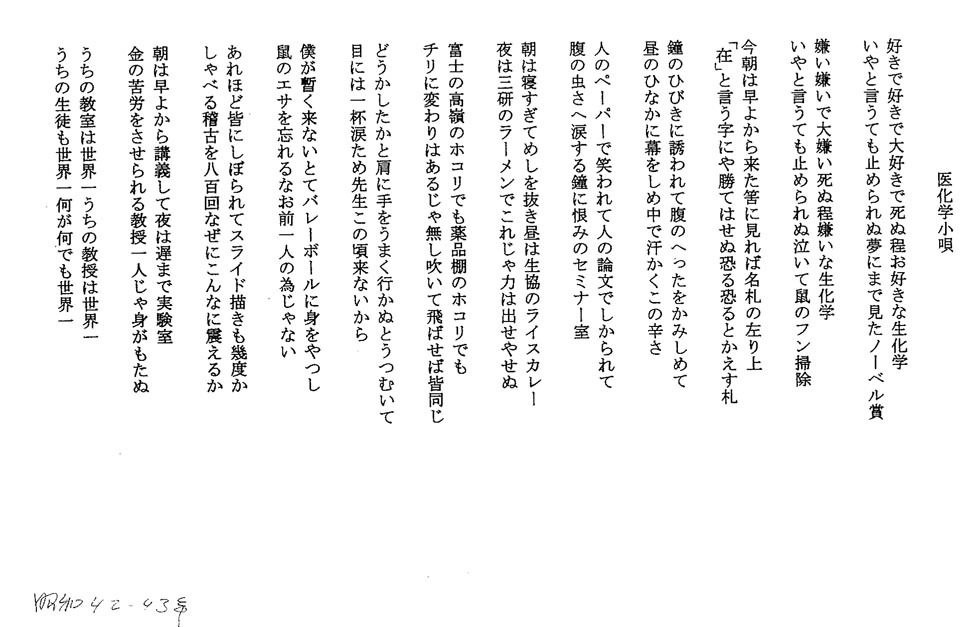 医化学小唄
好きで好きで大好きで死ぬ程お好きな生化学
いやと言うても止められぬ夢にまで見たノーベル賞
嫌い嫌いで大嫌い死ぬ程嫌いな生化学
いやと言うても止められぬ泣いて鼠のフン掃除
今朝は早よから来た筈に見れば名札の左り上
「在」と言う字にや勝てはせぬ恐る恐るとかえす札
鐘のひびきに誘われて腹のへったをかみしめて
昼のひなかに幕をしめ中で汗かくこの辛さ
人のペーパーで笑われて人の論文でしかられて
腹の虫さへ涙する鐘に恨みのセミナー室
朝は寝すぎてめしを抜き昼は生協のライスカレー
夜は三研のラーメンでこれじゃ力は出せやせぬ
富士の高嶺のホコリでも薬品棚のホコリでも
チリに変わりはあるじゃ無し吹いて飛ばせば皆同じ
どうかしたかと肩に手をうまく行かぬとうつむいて
目には一杯涙ため先生この頃来ないから
僕が暫く来ないとてバレーボールに身をやつし
鼠のエサを忘れるなお前一人の為じゃない
あれほど皆にしぼられてスライド描きも幾度か
しゃべる稽古を八百回なぜにこんなに震えるか
朝は早よから講義して夜は遅まで実験室
金の苦労をさせられる教授一人じゃ身がもたぬ
うちの教室は世界一うちの教授は世界一
うちの生徒も世界一何が何でも世界一
昭和42-43年